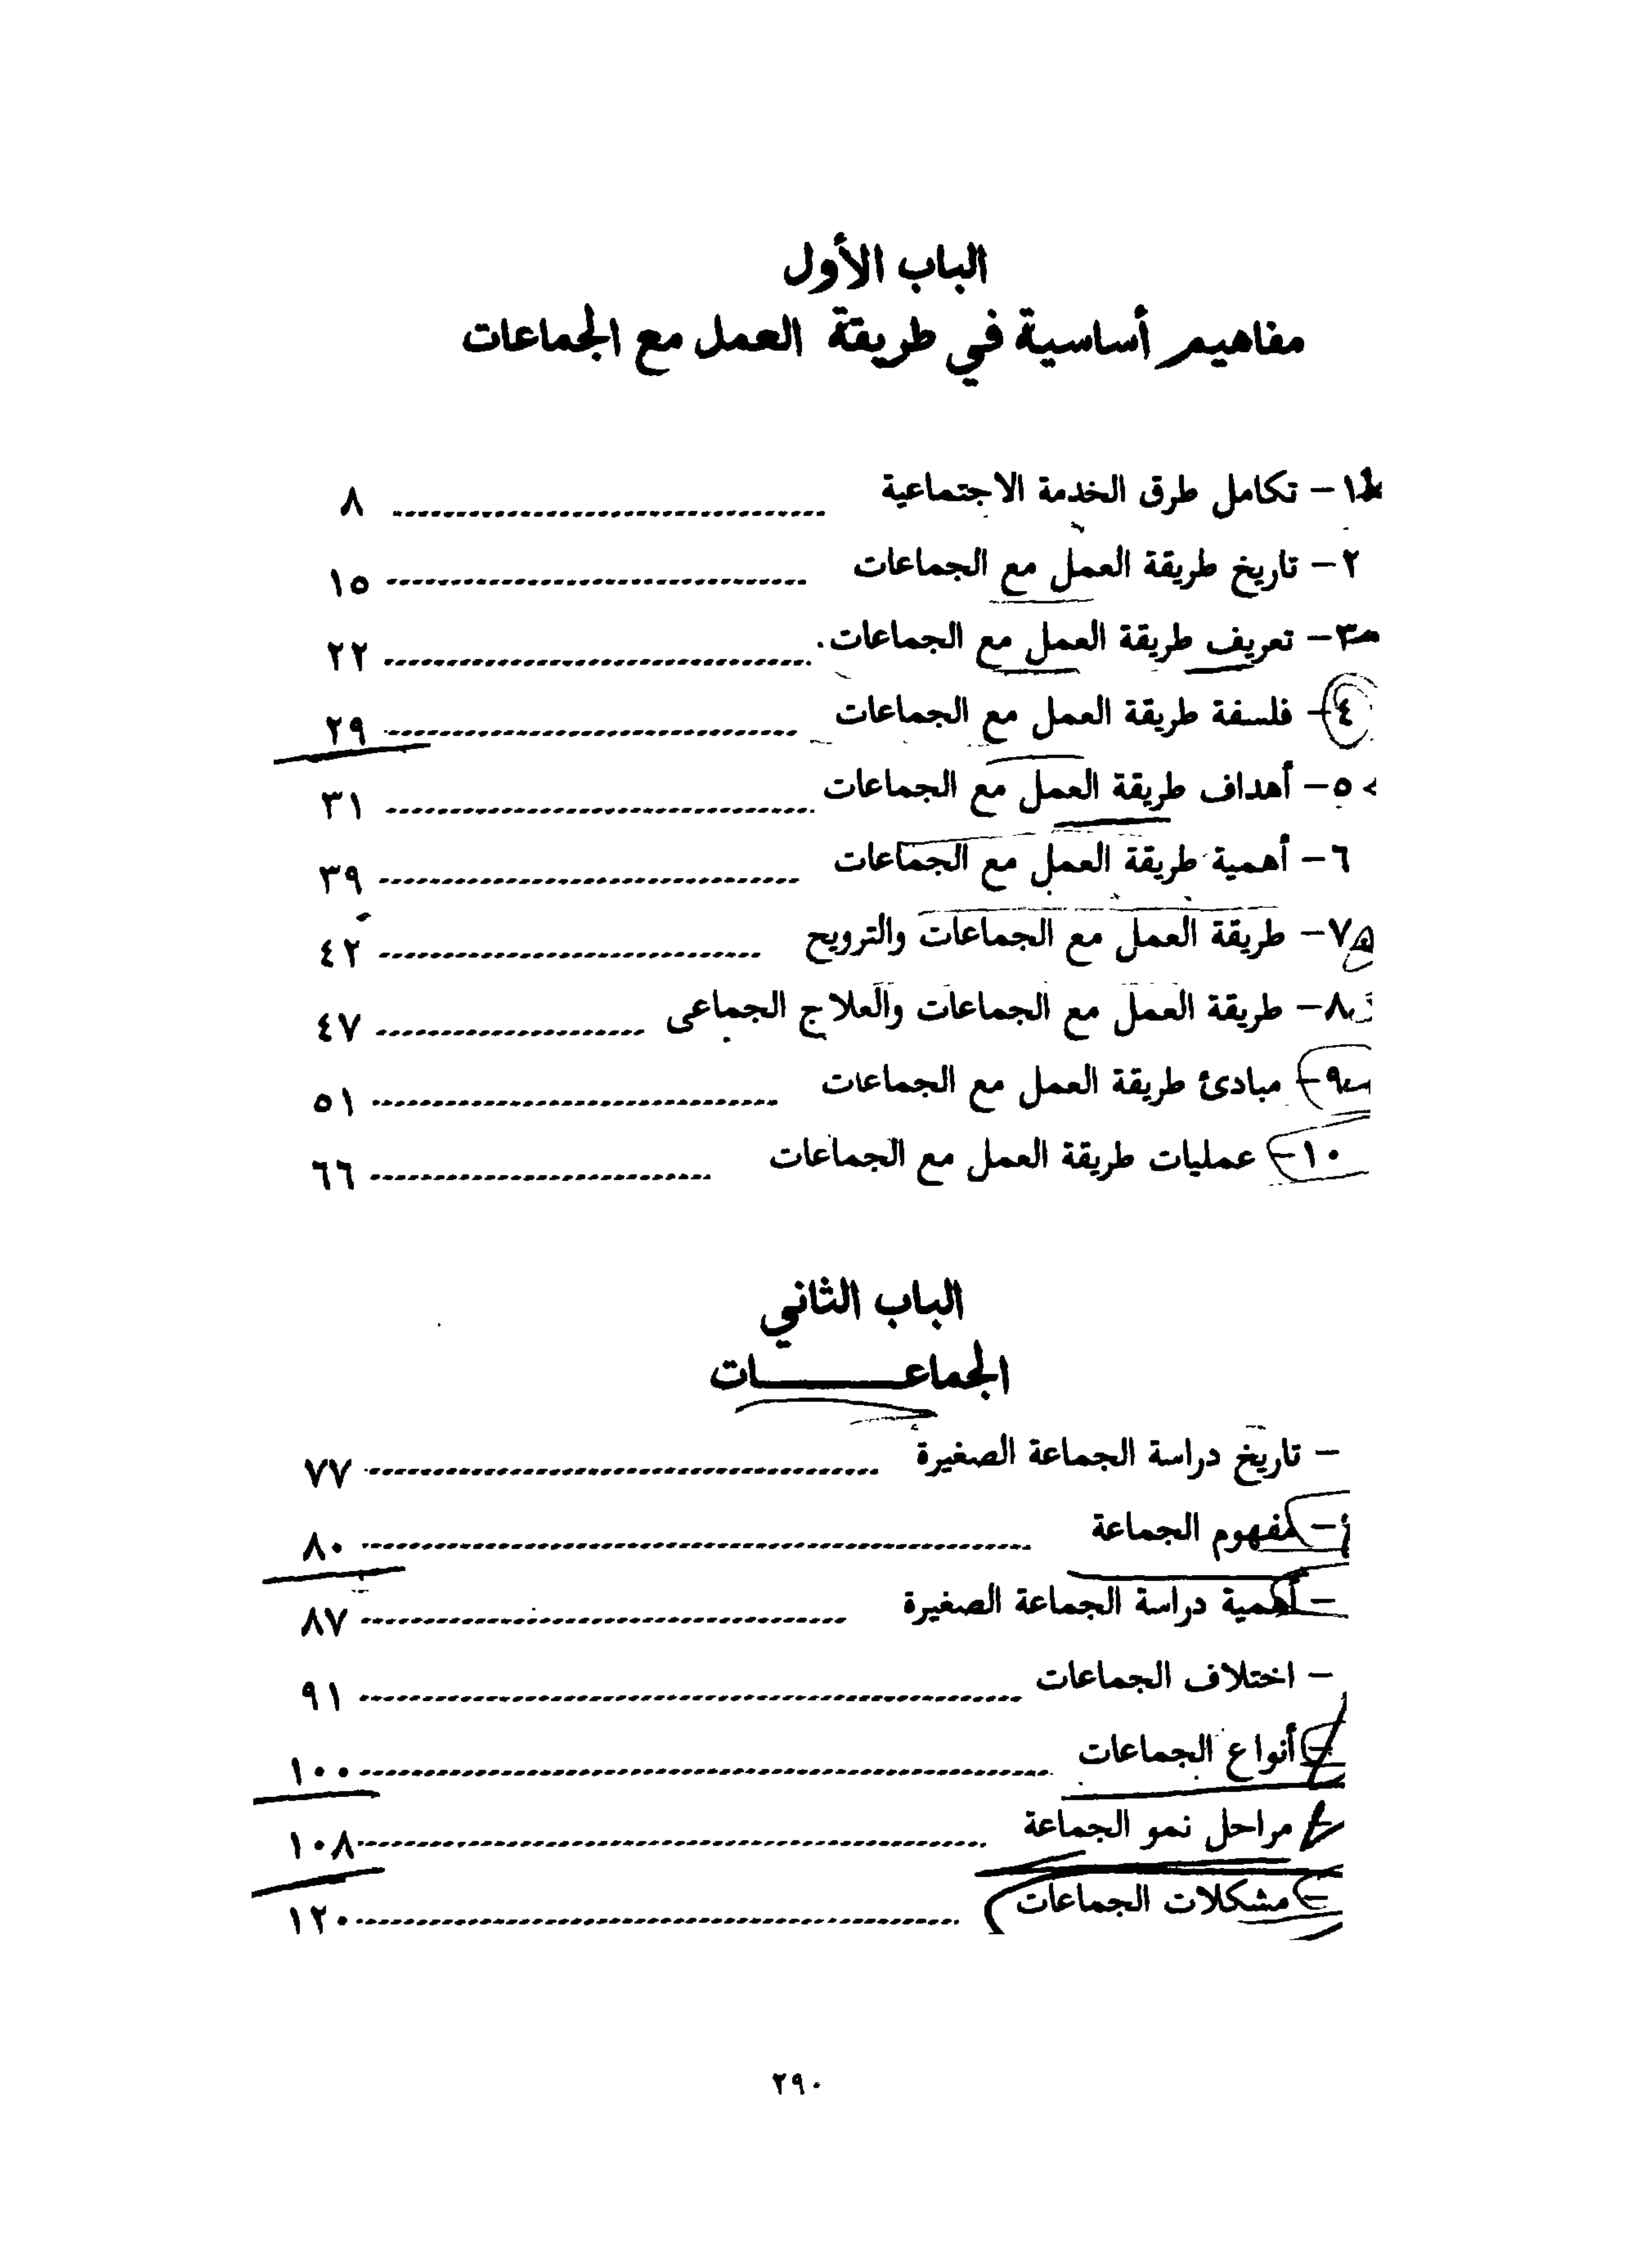 الباب الأول
مفاهيم أساسية في طريقة العمل مع الجماعات
١- تكامل طرق الخدمة الاجتماعية ........ ٨
٢- تاريخ طريقة العمل مع الجماعات ........ ١٥
٣- تعريف طريقة العمل مع الجماعات ........ ٢٢
٤- فلسفة طريقة العمل مع الجماعات ........ ٢٩
٥- أهداف طريقة العمل مع الجماعات ........ ٣١
٦- أهمية طريقة العمل مع الجماعات ........ ٣٩
٧- طريقة العمل مع الجماعات والترويح ........ ٤٢
٨- طريقة العمل مع الجماعات والعلاج الجماعى ........ ٤٧
٩- مبادئ طريقة العمل مع الجماعات ........ ٥١
١٠- عمليات طريقة العمل مع الجماعات ........ ٦٦
الباب الثاني
الجماعـــــات
- تاريخ دراسة الجماعة الصغيرة ........ ٧٧
- مفهوم الجماعة ........ ٨٠
- أهمية دراسة الجماعة الصغيرة ........ ٨٧
- اختلاف الجماعات ........ ٩١
- أنواع الجماعات ........ ١٠٠
- مراحل نمو الجماعة ........ ١٠٨
- مشكلات الجماعات ........ ١٢٠
٢٩٠